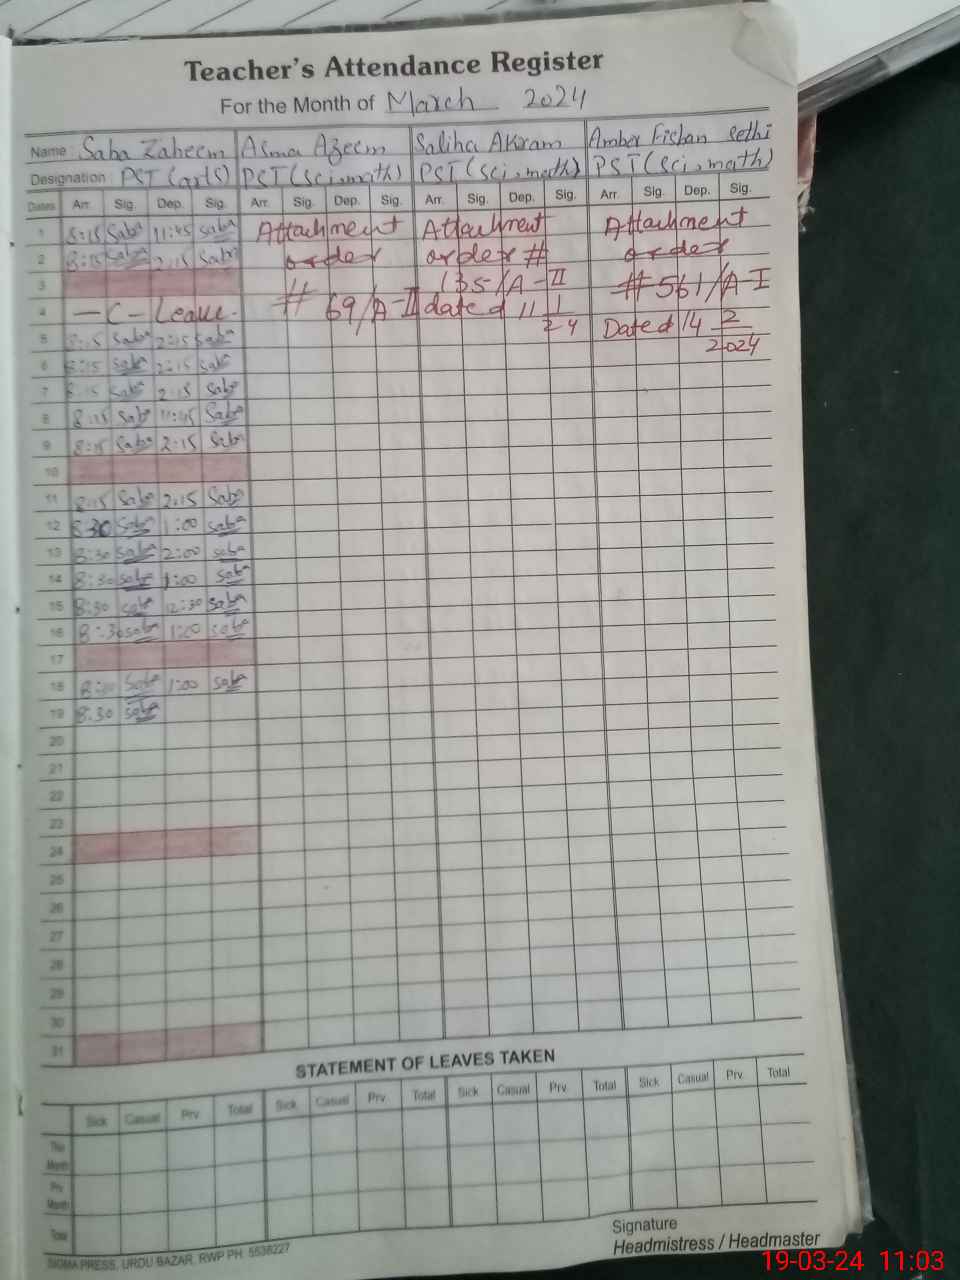 Teacher's Attendance Register
For the Month of March 2024
Name : Saba Zaheem Asma Azeem Saliha Akram Amber Fishan Sethi
Designation : PST (arts) PST (Sci-math) PST (Sci, math) PST (Sci, math)
Dates Arr. Sig. Dep. Sig. Arr. Sig. Dep. Sig. Arr. Sig. Dep. Sig. Arr. Sig. Dep. Sig.
1 8:15 Saba 11:45 Saba Attachment Attachment Attachment
2 8:15 Saba 2:15 Saba order order # order
3 135/A-II # 561/A-I
4 -C- Leave. # 69/A-II dated 11 1/24
5 8:15 Saba 2:15 Saba Dated 14 2/2024
6 8:15 Saba 2:15 Saba
7 8:15 Saba 2:15 Saba
8 8:15 Saba 11:45 Saba
9 8:15 Saba 2:15 Saba
10
11 8:15 Saba 2:15 Saba
12 8:30 Saba 1:00 Saba
13 8:30 Saba 2:00 Saba
14 8:30 Saba 1:00 Saba
15 8:30 Saba 12:30 Saba
16 8:30 Saba 1:00 Saba
17
18 Saba 1:00 Saba
19 8:30 Saba
20
21
22
23
24
25
26
27
28
29
30
31
STATEMENT OF LEAVES TAKEN
Sick Casual Prv. Total Sick Casual Prv. Total Sick Casual Prv. Total Sick Casual Prv. Total
The
Month
Prv
Month
Total
SIGMA PRESS, URDU BAZAR, RWP PH: 5538227
Signature
Headmistress / Headmaster
19-03-24 11:03